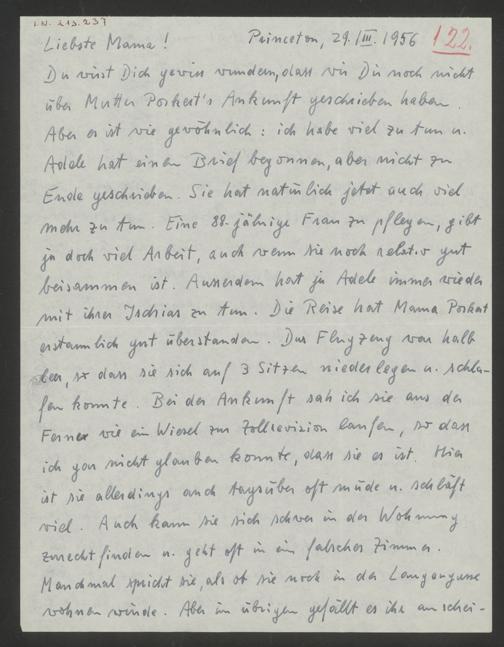 I.N. 213.237
Liebste Mama! Princeton, 29./III. 1956 122.
Du wirst Dich gewiss wundern, dass wir Dir noch nicht
über Mutter Porkert's Ankunft geschrieben haben.
Aber es ist wie gewöhnlich: ich habe viel zu tun u.
Adele hat einen Brief begonnen, aber nicht zu
Ende geschrieben. Sie hat natürlich jetzt auch viel
mehr zu tun. Eine 88-jährige Frau zu pflegen, gibt
ja doch viel Arbeit, auch wenn sie noch relativ gut
beisammen ist. Ausserdem hat ja Adele immer wieder
mit ihrer Ischias zu tun. Die Reise hat Mama Porkert
erstaunlich gut überstanden. Das Flugzeug war halb
leer, so dass sie sich auf 3 Sitzen niederlegen u. schla-
fen konnte. Bei der Ankunft sah ich sie aus der
Ferne wie ein Wiesel zur Zollrevision laufen, so dass
ich gar nicht glauben konnte, dass sie es ist. Hier
ist sie allerdings auch tagsüber oft müde u. schläft
viel. Auch kann sie sich schwer in der Wohnung
zurechtfinden u. geht oft in ein falsches Zimmer.
Manchmal spricht sie, als ob sie noch in der Langegasse
wohnen würde. Aber im übrigen gefällt es ihr anschei-